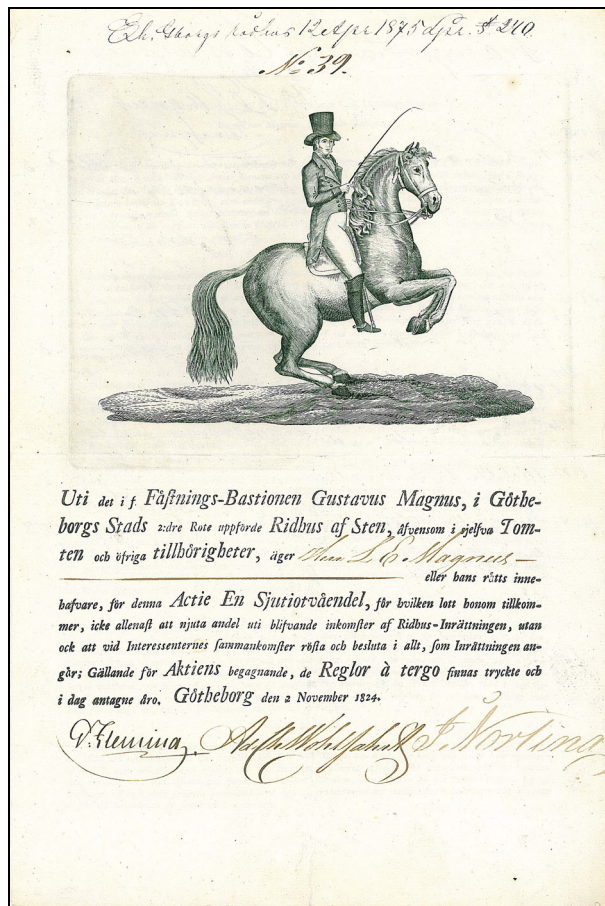 Gborgs Rådhus 12 Apr 1875 $ 240.
No 39.
Uti det i f. Fåstnings-Bastionen Gustavus Magnus, i Göthe-
borgs Stads 2:dre Rote uppförde Ridhus af Sten, åfvensom i sjelfva Tom-
ten och öfriga tillhörigheter, äger Herr L E Magnus
eller hans rätts inne-
hafvare, för denna Actie En Sjutiotvåendel, för hvilken lott honom tillkom-
mer, icke allenast att njuta andel uti blifvande inkomster af Ridhus-Inrättningen, utan
ock att vid Interessenternes sammankomster rösta och besluta i allt, som Inrättningen an-
går; Gällande för Aktiens begagnande, de Reglor à tergo finnas tryckte och
i dag antagne äro. Götheborg den 2 November 1824.
D. Fleming. J. Norling